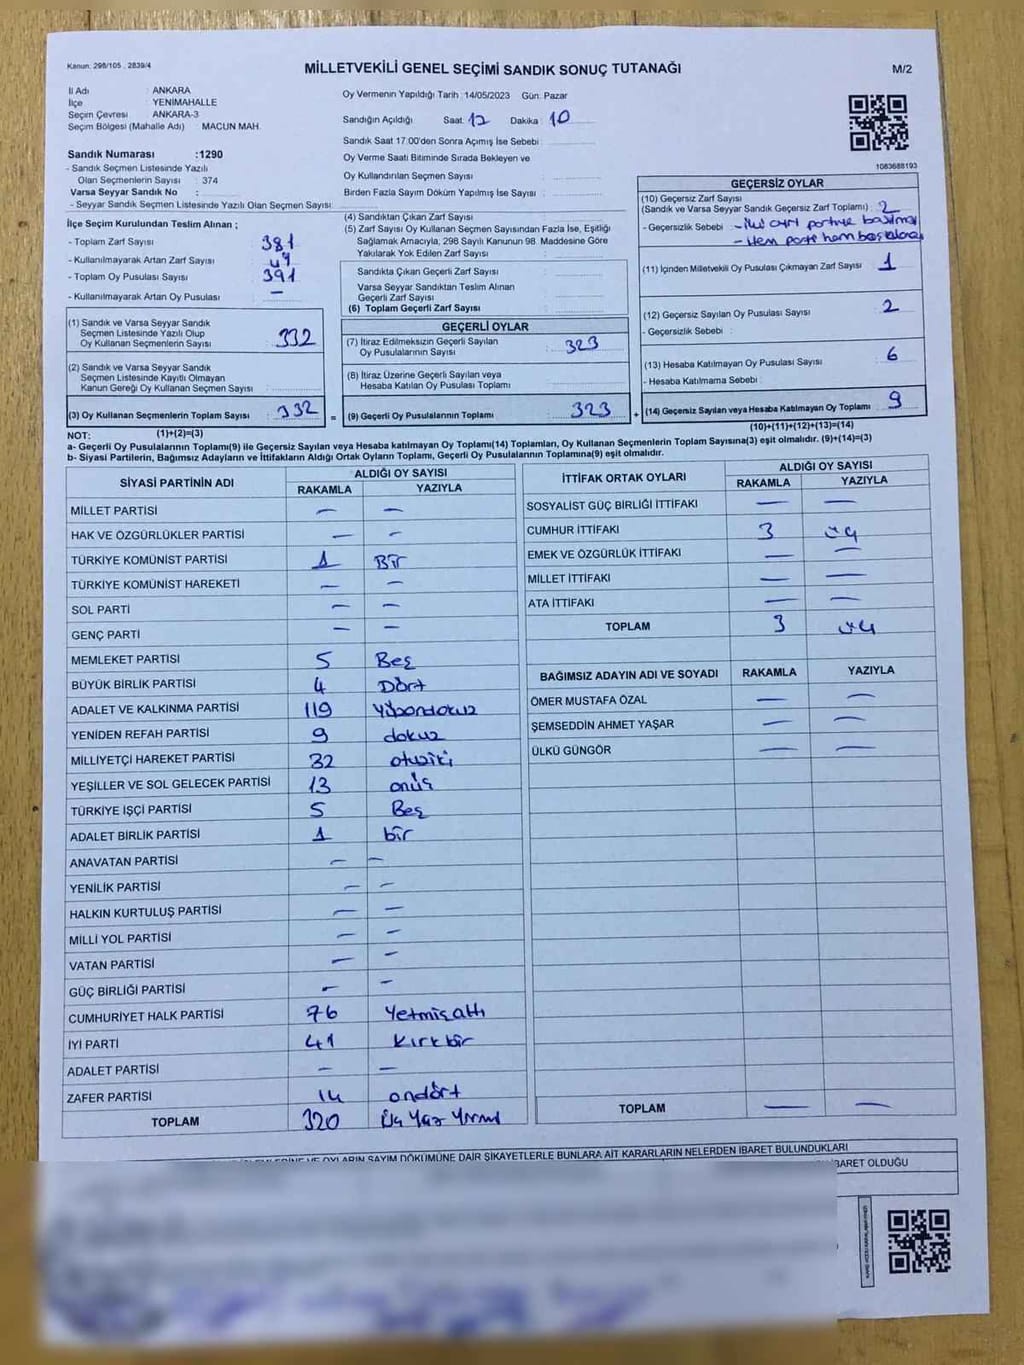 Kanun: 298/105 , 2839/4
MİLLETVEKİLİ GENEL SEÇİMİ SANDIK SONUÇ TUTANAĞI
M/2
İl Adı : ANKARA
İlçe : YENİMAHALLE
Seçim Çevresi : ANKARA-3
Seçim Bölgesi (Mahalle Adı) : MACUN MAH.
Sandık Numarası :1290
- Sandık Seçmen Listesinde Yazılı
Olan Seçmenlerin Sayısı : 374
Varsa Seyyar Sandık No :
- Seyyar Sandık Seçmen Listesinde Yazılı Olan Seçmen Sayısı:
İlçe Seçim Kurulundan Teslim Alınan ;
- Toplam Zarf Sayısı 381
- Kullanılmayarak Artan Zarf Sayısı 49
- Toplam Oy Pusulası Sayısı 391
- Kullanılmayarak Artan Oy Pusulası —
(1) Sandık ve Varsa Seyyar Sandık
Seçmen Listesinde Yazılı Olup
Oy Kullanan Seçmenlerin Sayısı 332
(2) Sandık ve Varsa Seyyar Sandık
Seçmen Listesinde Kayıtlı Olmayan
Kanun Gereği Oy Kullanan Seçmen Sayısı
(3) Oy Kullanan Seçmenlerin Toplam Sayısı 332 =
(1)+(2)=(3)
Oy Vermenin Yapıldığı Tarih :14/05/2023 Gün: Pazar
Sandığın Açıldığı Saat: 17 Dakika: 10
Sandık Saat 17.00'den Sonra Açımış İse Sebebi :
Oy Verme Saati Bitiminde Sırada Bekleyen ve
Oy Kullandırılan Seçmen Sayısı :
Birden Fazla Sayım Döküm Yapılmış İse Sayısı :
(4) Sandıktan Çıkan Zarf Sayısı
(5) Zarf Sayısı Oy Kullanan Seçmen Sayısından Fazla İse, Eşitliği
Sağlamak Amacıyla, 298 Sayılı Kanunun 98. Maddesine Göre
Yakılarak Yok Edilen Zarf Sayısı
Sandıkta Çıkan Geçerli Zarf Sayısı
Varsa Seyyar Sandıktan Teslim Alınan
Geçerli Zarf Sayısı
(6) Toplam Geçerli Zarf Sayısı
GEÇERLİ OYLAR
(7) İtiraz Edilmeksizin Geçerli Sayılan
Oy Pusulalarının Sayısı 323
(8) İtiraz Üzerine Geçerli Sayılan veya
Hesaba Katılan Oy Pusulası Toplamı
(9) Geçerli Oy Pusulalarının Toplamı 323 +
1083688193
GEÇERSİZ OYLAR
(10) Geçersiz Zarf Sayısı
(Sandık ve Varsa Seyyar Sandık Geçersiz Zarf Toplamı) : 2
- Geçersizlik Sebebi - İki ayrı partiye basılmış
- Hem parti hem
(11) İçinden Milletvekili Oy Pusulası Çıkmayan Zarf Sayısı 1
(12) Geçersiz Sayılan Oy Pusulası Sayısı 2
- Geçersizlik Sebebi :
(13) Hesaba Katılmayan Oy Pusulası Sayısı 6
- Hesaba Katılmama Sebebi
(14) Geçersiz Sayılan veya Hesaba Katılmayan Oy Toplamı 9
(10)+(11)+(12)+(13)=(14)
NOT:
a- Geçerli Oy Pusulalarının Toplamı(9) ile Geçersiz Sayılan veya Hesaba katılmayan Oy Toplamı(14) Toplamları, Oy Kullanan Seçmenlerin Toplam Sayısına(3) eşit olmalıdır. (9)+(14)=(3)
b- Siyasi Partilerin, Bağımsız Adayların ve İttifakların Aldığı Ortak Oyların Toplamı, Geçerli Oy Pusulalarının Toplamına(9) eşit olmalıdır.
SİYASİ PARTİNİN ADI ALDIĞI OY SAYISI
RAKAMLA YAZIYLA
MİLLET PARTİSİ — —
HAK VE ÖZGÜRLÜKLER PARTİSİ — —
TÜRKİYE KOMÜNİST PARTİSİ 1 Bir
TÜRKİYE KOMÜNİST HAREKETİ — —
SOL PARTİ — —
GENÇ PARTİ — —
MEMLEKET PARTİSİ 5 Beş
BÜYÜK BİRLİK PARTİSİ 4 Dört
ADALET VE KALKINMA PARTİSİ 119 Yüzondokuz
YENİDEN REFAH PARTİSİ 9 dokuz
MİLLİYETÇİ HAREKET PARTİSİ 32 otuziki
YEŞİLLER VE SOL GELECEK PARTİSİ 13 onüç
TÜRKİYE İŞÇİ PARTİSİ 5 Beş
ADALET BİRLİK PARTİSİ 1 bir
ANAVATAN PARTİSİ — —
YENİLİK PARTİSİ — —
HALKIN KURTULUŞ PARTİSİ — —
MİLLİ YOL PARTİSİ — —
VATAN PARTİSİ — —
GÜÇ BİRLİĞİ PARTİSİ — —
CUMHURİYET HALK PARTİSİ 76 Yetmişaltı
İYİ PARTİ 41 Kırkbir
ADALET PARTİSİ — —
ZAFER PARTİSİ 14 ondört
TOPLAM 320 Üç Yüz Yirmi
İTTİFAK ORTAK OYLARI ALDIĞI OY SAYISI
RAKAMLA YAZIYLA
SOSYALİST GÜÇ BİRLİĞİ İTTİFAKI — —
CUMHUR İTTİFAKI 3 üç
EMEK VE ÖZGÜRLÜK İTTİFAKI — —
MİLLET İTTİFAKI — —
ATA İTTİFAKI — —
TOPLAM 3 üç
BAĞIMSIZ ADAYIN ADI VE SOYADI RAKAMLA YAZIYLA
ÖMER MUSTAFA ÖZAL — —
ŞEMSEDDİN AHMET YAŞAR — —
ÜLKÜ GÜNGÖR — —
TOPLAM — —
VE OYLARIN SAYIM DÖKÜMÜNE DAİR ŞİKAYETLERLE BUNLARA AİT KARARLARIN NELERDEN İBARET BULUNDUKLARI
İBARET OLDUĞU